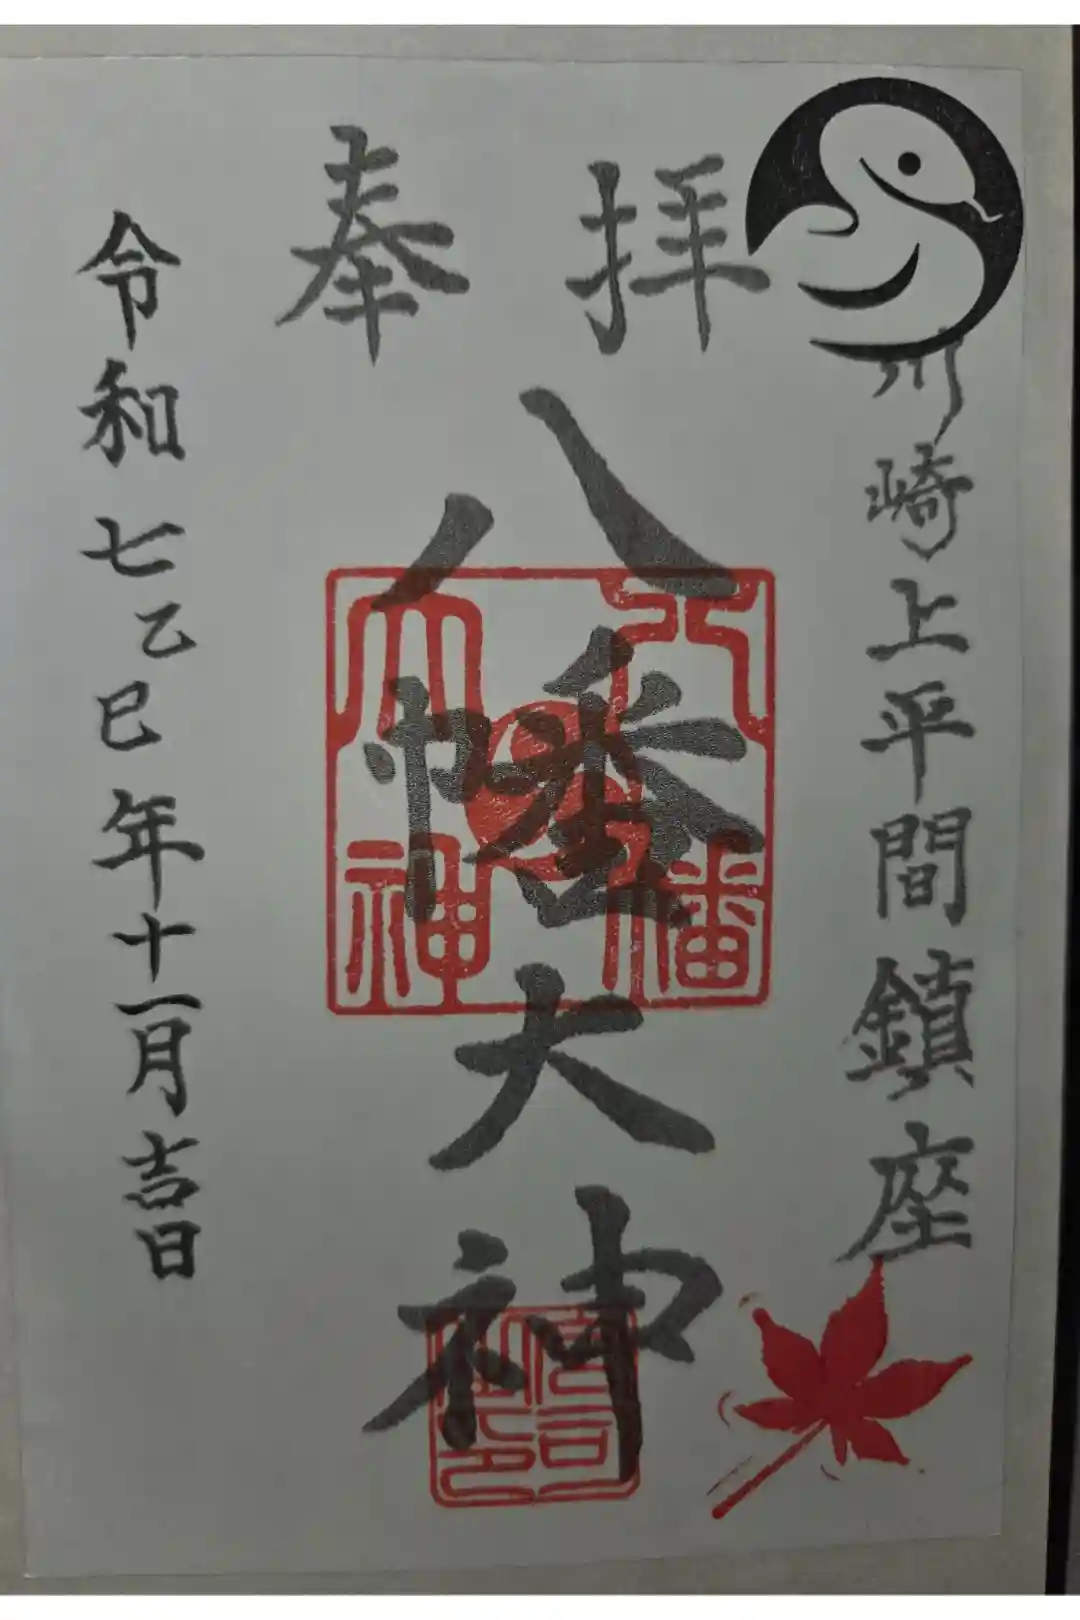 川崎上平間鎮座
奉拝
八幡大神
令和七乙巳年十一月吉日
八幡
大神
宮司
之印